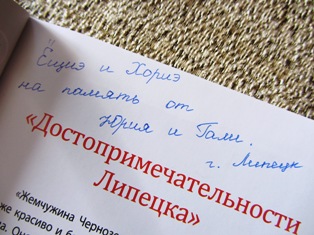 Ёшиэ и Хориэ
на память от
Юрия и Гали.
г. Липецк
«Достопримечательности
Липецка»
«Жемчужина Черноз
же красиво и б